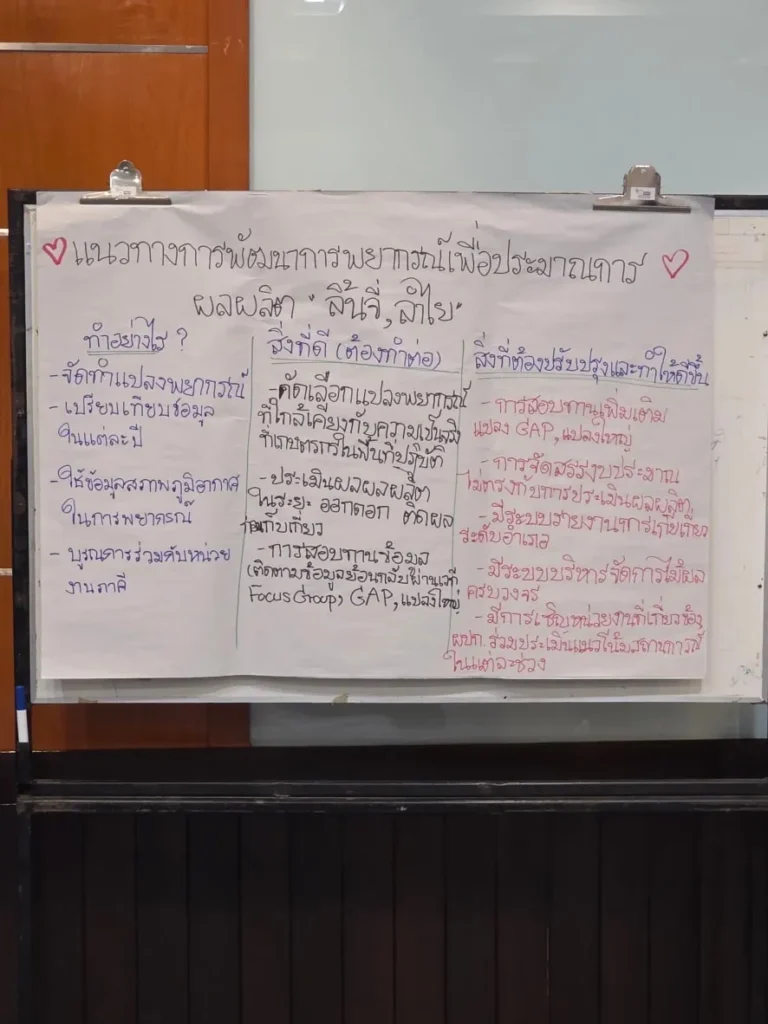 แนวทางการพัฒนาการพยากรณ์เพื่อประมาณการ
ผลผลิต "ลิ้นจี่, ลำไย"
ทำอย่างไร ?
- จัดทำแปลงพยากรณ์
- เปรียบเทียบข้อมูล
ในแต่ละปี
- ใช้ข้อมูลสภาพภูมิอากาศ
ในการพยากรณ์
- บูรณาการร่วมกับหน่วย
งานภาคี
สิ่งที่ดี (ต้องทำต่อ)
- คัดเลือกแปลงพยากรณ์
ที่ใกล้เคียงกับความเป็นจริง
ที่เกษตรกรในพื้นที่ปฏิบัติ
- ประเมินผลผลผลิต
ในระยะ ออกดอก ติดผล
ก่อนเก็บเกี่ยว
- การสอบทานข้อมูล
(ติดตามข้อมูลย้อนกลับ) ผ่านเวที
Focus Group, GAP, แปลงใหญ่
สิ่งที่ต้องปรับปรุงและทำให้ดีขึ้น
- การสอบทานเพิ่มเติม
แปลง GAP, แปลงใหญ่
- การจัดสรรงบประมาณ
ไม่ตรงกับการประเมินผลผลิต
- มีระบบรายงานการเก็บเกี่ยว
ระดับอำเภอ
- มีระบบบริหารจัดการไม้ผล
ครบวงจร
- มีการเชิญหน่วยงานที่เกี่ยวข้อง
ผปก. ร่วมประเมินแนวโน้มสถานการณ์
ในแต่ละช่วง